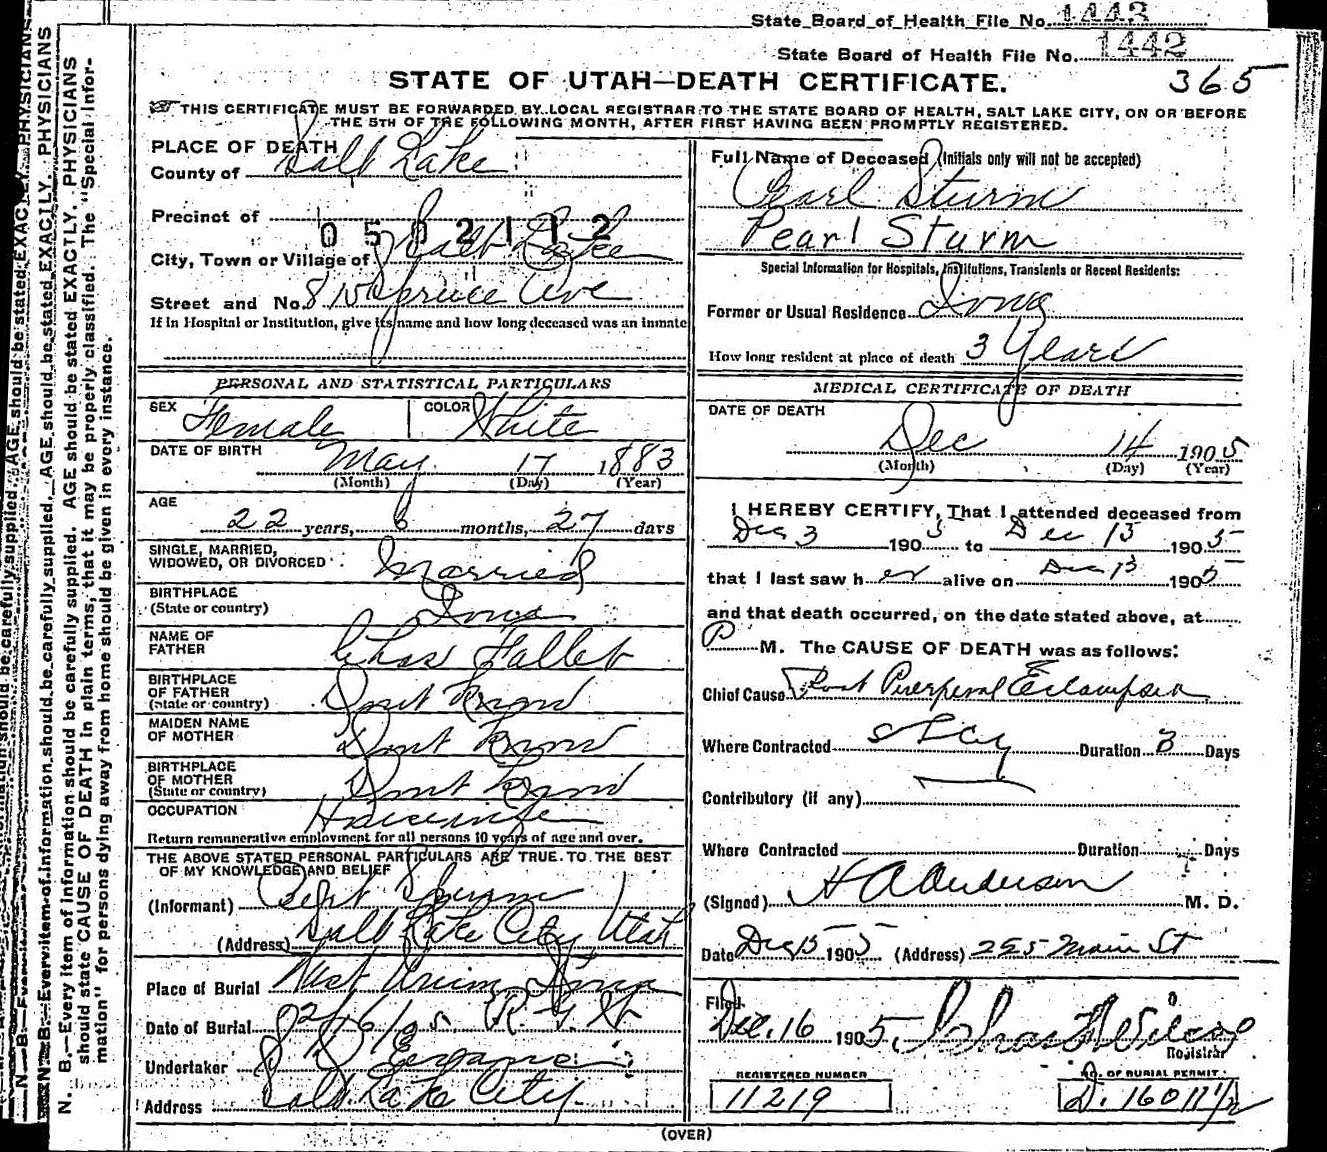 State Board of Health File No. 1443
State Board of Health File No. 1442
STATE OF UTAH—DEATH CERTIFICATE.
365
THIS CERTIFICATE MUST BE FORWARDED BY LOCAL REGISTRAR TO THE STATE BOARD OF HEALTH, SALT LAKE CITY, ON OR BEFORE
THE 5TH OF THE FOLLOWING MONTH, AFTER FIRST HAVING BEEN PROMPTLY REGISTERED.
PLACE OF DEATH
County of Salt Lake
Precinct of
0502112
City, Town or Village of Salt Lake
Street and No. 815 Spruce Ave
If in Hospital or Institution, give its name and how long deceased was an inmate
PERSONAL AND STATISTICAL PARTICULARS
SEX Female COLOR White
DATE OF BIRTH May 17 1883
(Month) (Day) (Year)
AGE
22 years, 6 months, 27 days
SINGLE, MARRIED,
WIDOWED, OR DIVORCED Married
BIRTHPLACE
(State or country) Iowa
NAME OF
FATHER Chas Hallet
BIRTHPLACE
OF FATHER
(State or country) Dont Know
MAIDEN NAME
OF MOTHER Dont Know
BIRTHPLACE
OF MOTHER
(State or country) Dont Know
OCCUPATION Housewife
Return remunerative employment for all persons 10 years of age and over.
THE ABOVE STATED PERSONAL PARTICULARS ARE TRUE TO THE BEST
OF MY KNOWLEDGE AND BELIEF
(Informant) Bert Sturm
(Address) Salt Lake City Utah
Place of Burial West Union Iowa
Date of Burial 12/16/05
Undertaker
Address Salt Lake City
Full Name of Deceased (Initials only will not be accepted)
Pearl Sturm
Pearl Sturm
Special Information for Hospitals, Institutions, Transients or Recent Residents:
Former or Usual Residence Iowa
How long resident at place of death 3 Years
MEDICAL CERTIFICATE OF DEATH
DATE OF DEATH
Dec 14 1905
(Month) (Day) (Year)
I HEREBY CERTIFY, That I attended deceased from
Dec 3 1905 to Dec 13 1905
that I last saw her alive on Dec 13 1905
and that death occurred, on the date stated above, at
P M. The CAUSE OF DEATH was as follows:
Chief Cause Post Puerperal Eclampsia
Where Contracted S L Cy Duration 3 Days
Contributory (if any)
Where Contracted Duration Days
(Signed) H A Anderson M. D.
Date Dec 15 1905 (Address) 225 Main St
Filed
Dec. 16 1905.
Registrar
REGISTERED NUMBER
11219
NO. OF BURIAL PERMIT
(OVER)
N. B.—Every item of information should be carefully supplied. AGE should be stated EXACTLY. PHYSICIANS
should state CAUSE OF DEATH in plain terms, that it may be properly classified. The "Special Infor-
mation" for persons dying away from home should be given in every instance.
N. B.—Every item of information should be carefully supplied. AGE should be stated EXACTLY. PHYSICIANS